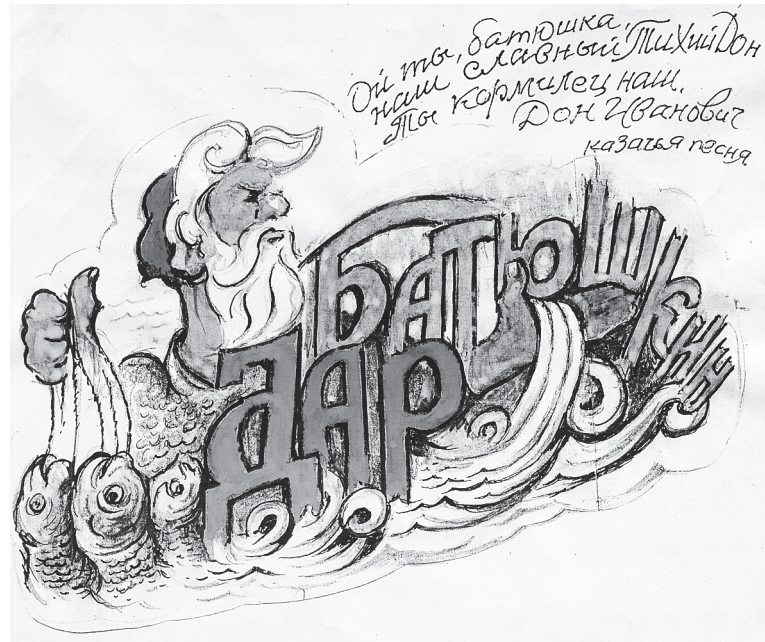 Ой ты, батюшка,
наш славный Тихий Дон
Ты кормилец наш,
Дон Иванович
казачья песня
БАТЮШКИН
ДАР